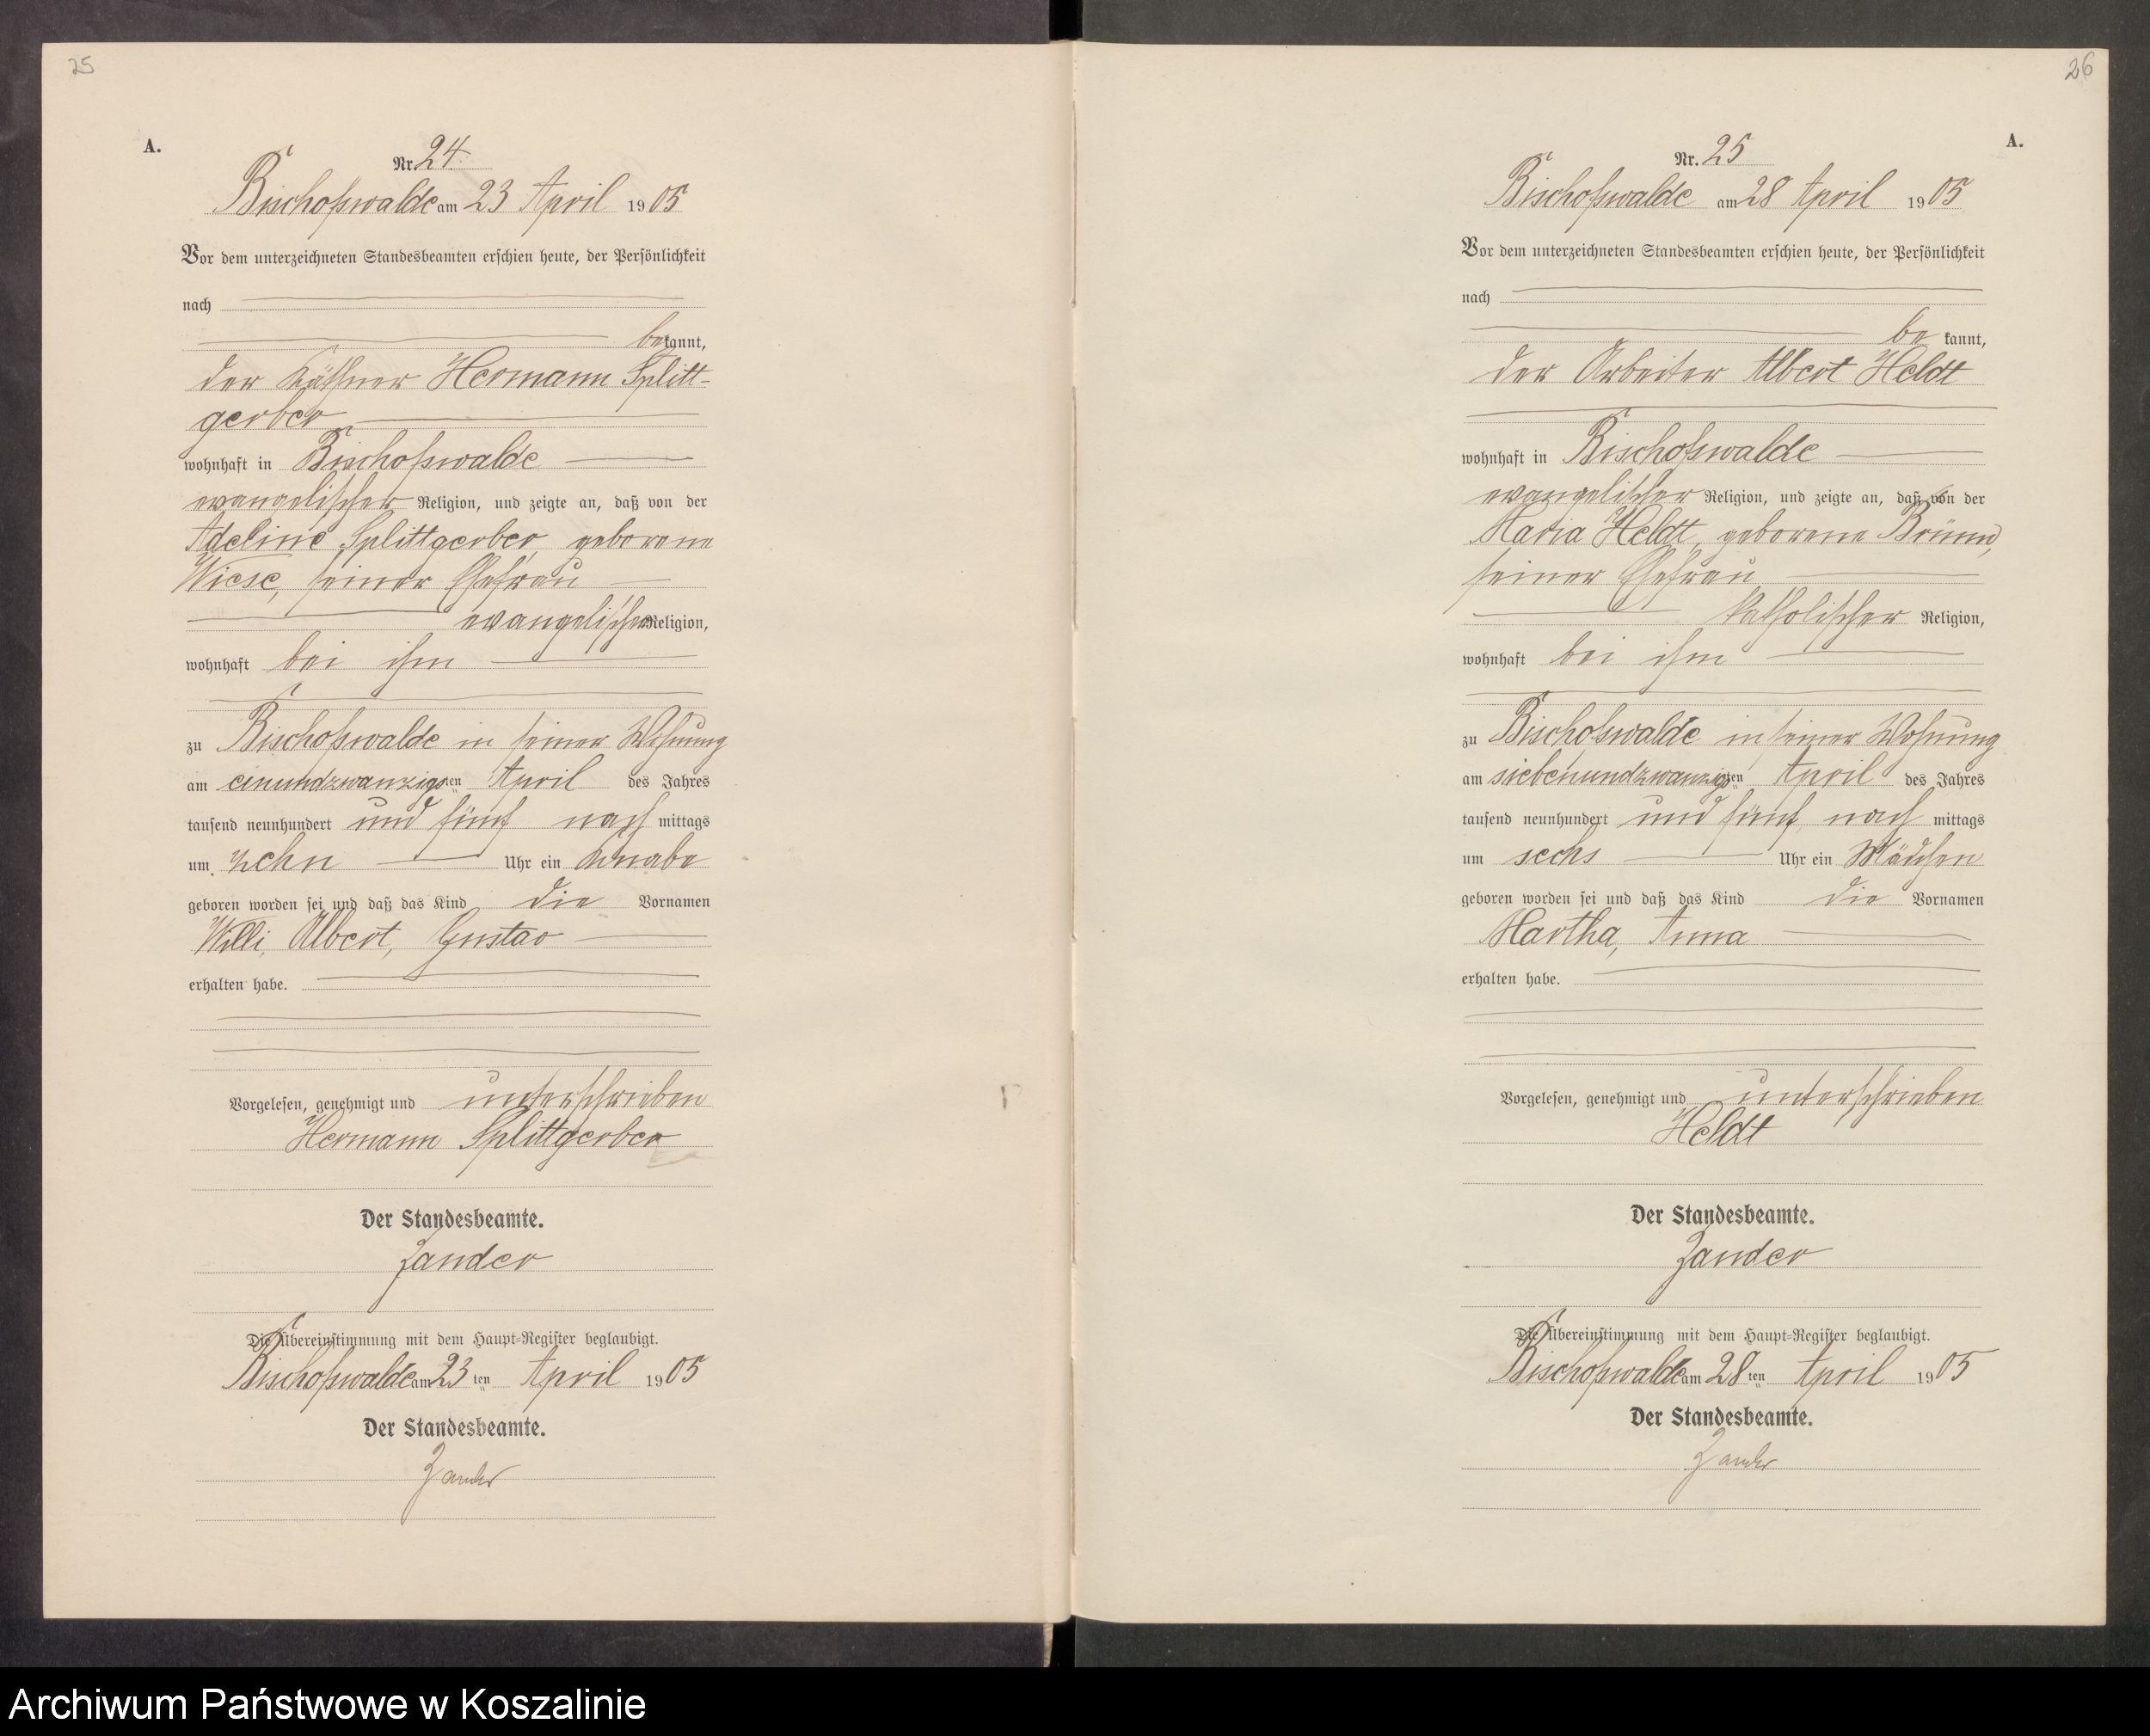 25
A.
Nr. 24.
Bischofswalde am 23 April 1905
Vor dem unterzeichneten Standesbeamten erschien heute, der Persönlichkeit
nach
bekannt,
der Käthner Hermann Splitt-
gerber
wohnhaft in Bischofswalde
evangelischer Religion, und zeigte an, daß von der
Adeline Splittgerber, geborene
Wiese, seiner Ehefrau
evangelischer Religion,
wohnhaft bei ihm
zu Bischofswalde in seiner Wohnung
am einundzwanzigsten April des Jahres
tausend neunhundert und fünf nach mittags
um zehn Uhr ein Knabe
geboren worden sei und daß das Kind die Vornamen
Willi, Albert, Gustav
erhalten habe.
Vorgelesen, genehmigt und unterschrieben
Hermann Splittgerber
Der Standesbeamte.
Zander
Die Übereinstimmung mit dem Haupt-Register beglaubigt.
Bischofswalde am 23ten April 1905
Der Standesbeamte.
Zander
26
A.
Nr. 25
Bischofswalde am 28 April 1905
Vor dem unterzeichneten Standesbeamten erschien heute, der Persönlichkeit
nach
bekannt,
der Arbeiter Albert Heldt
wohnhaft in Bischofswalde
evangelischer Religion, und zeigte an, daß von der
Maria Heldt, geborene
seiner Ehefrau
katholischer Religion,
wohnhaft bei ihm
zu Bischofswalde in seiner Wohnung
am siebenundzwanzigsten April des Jahres
tausend neunhundert und fünf nach mittags
um sechs Uhr ein Mädchen
geboren worden sei und daß das Kind die Vornamen
Martha, Anna
erhalten habe.
Vorgelesen, genehmigt und unterschrieben
Heldt
Der Standesbeamte.
Zander
Die Übereinstimmung mit dem Haupt-Register beglaubigt.
Bischofswalde am 28ten April 1905
Der Standesbeamte.
Zander
Archiwum Państwowe w Koszalinie